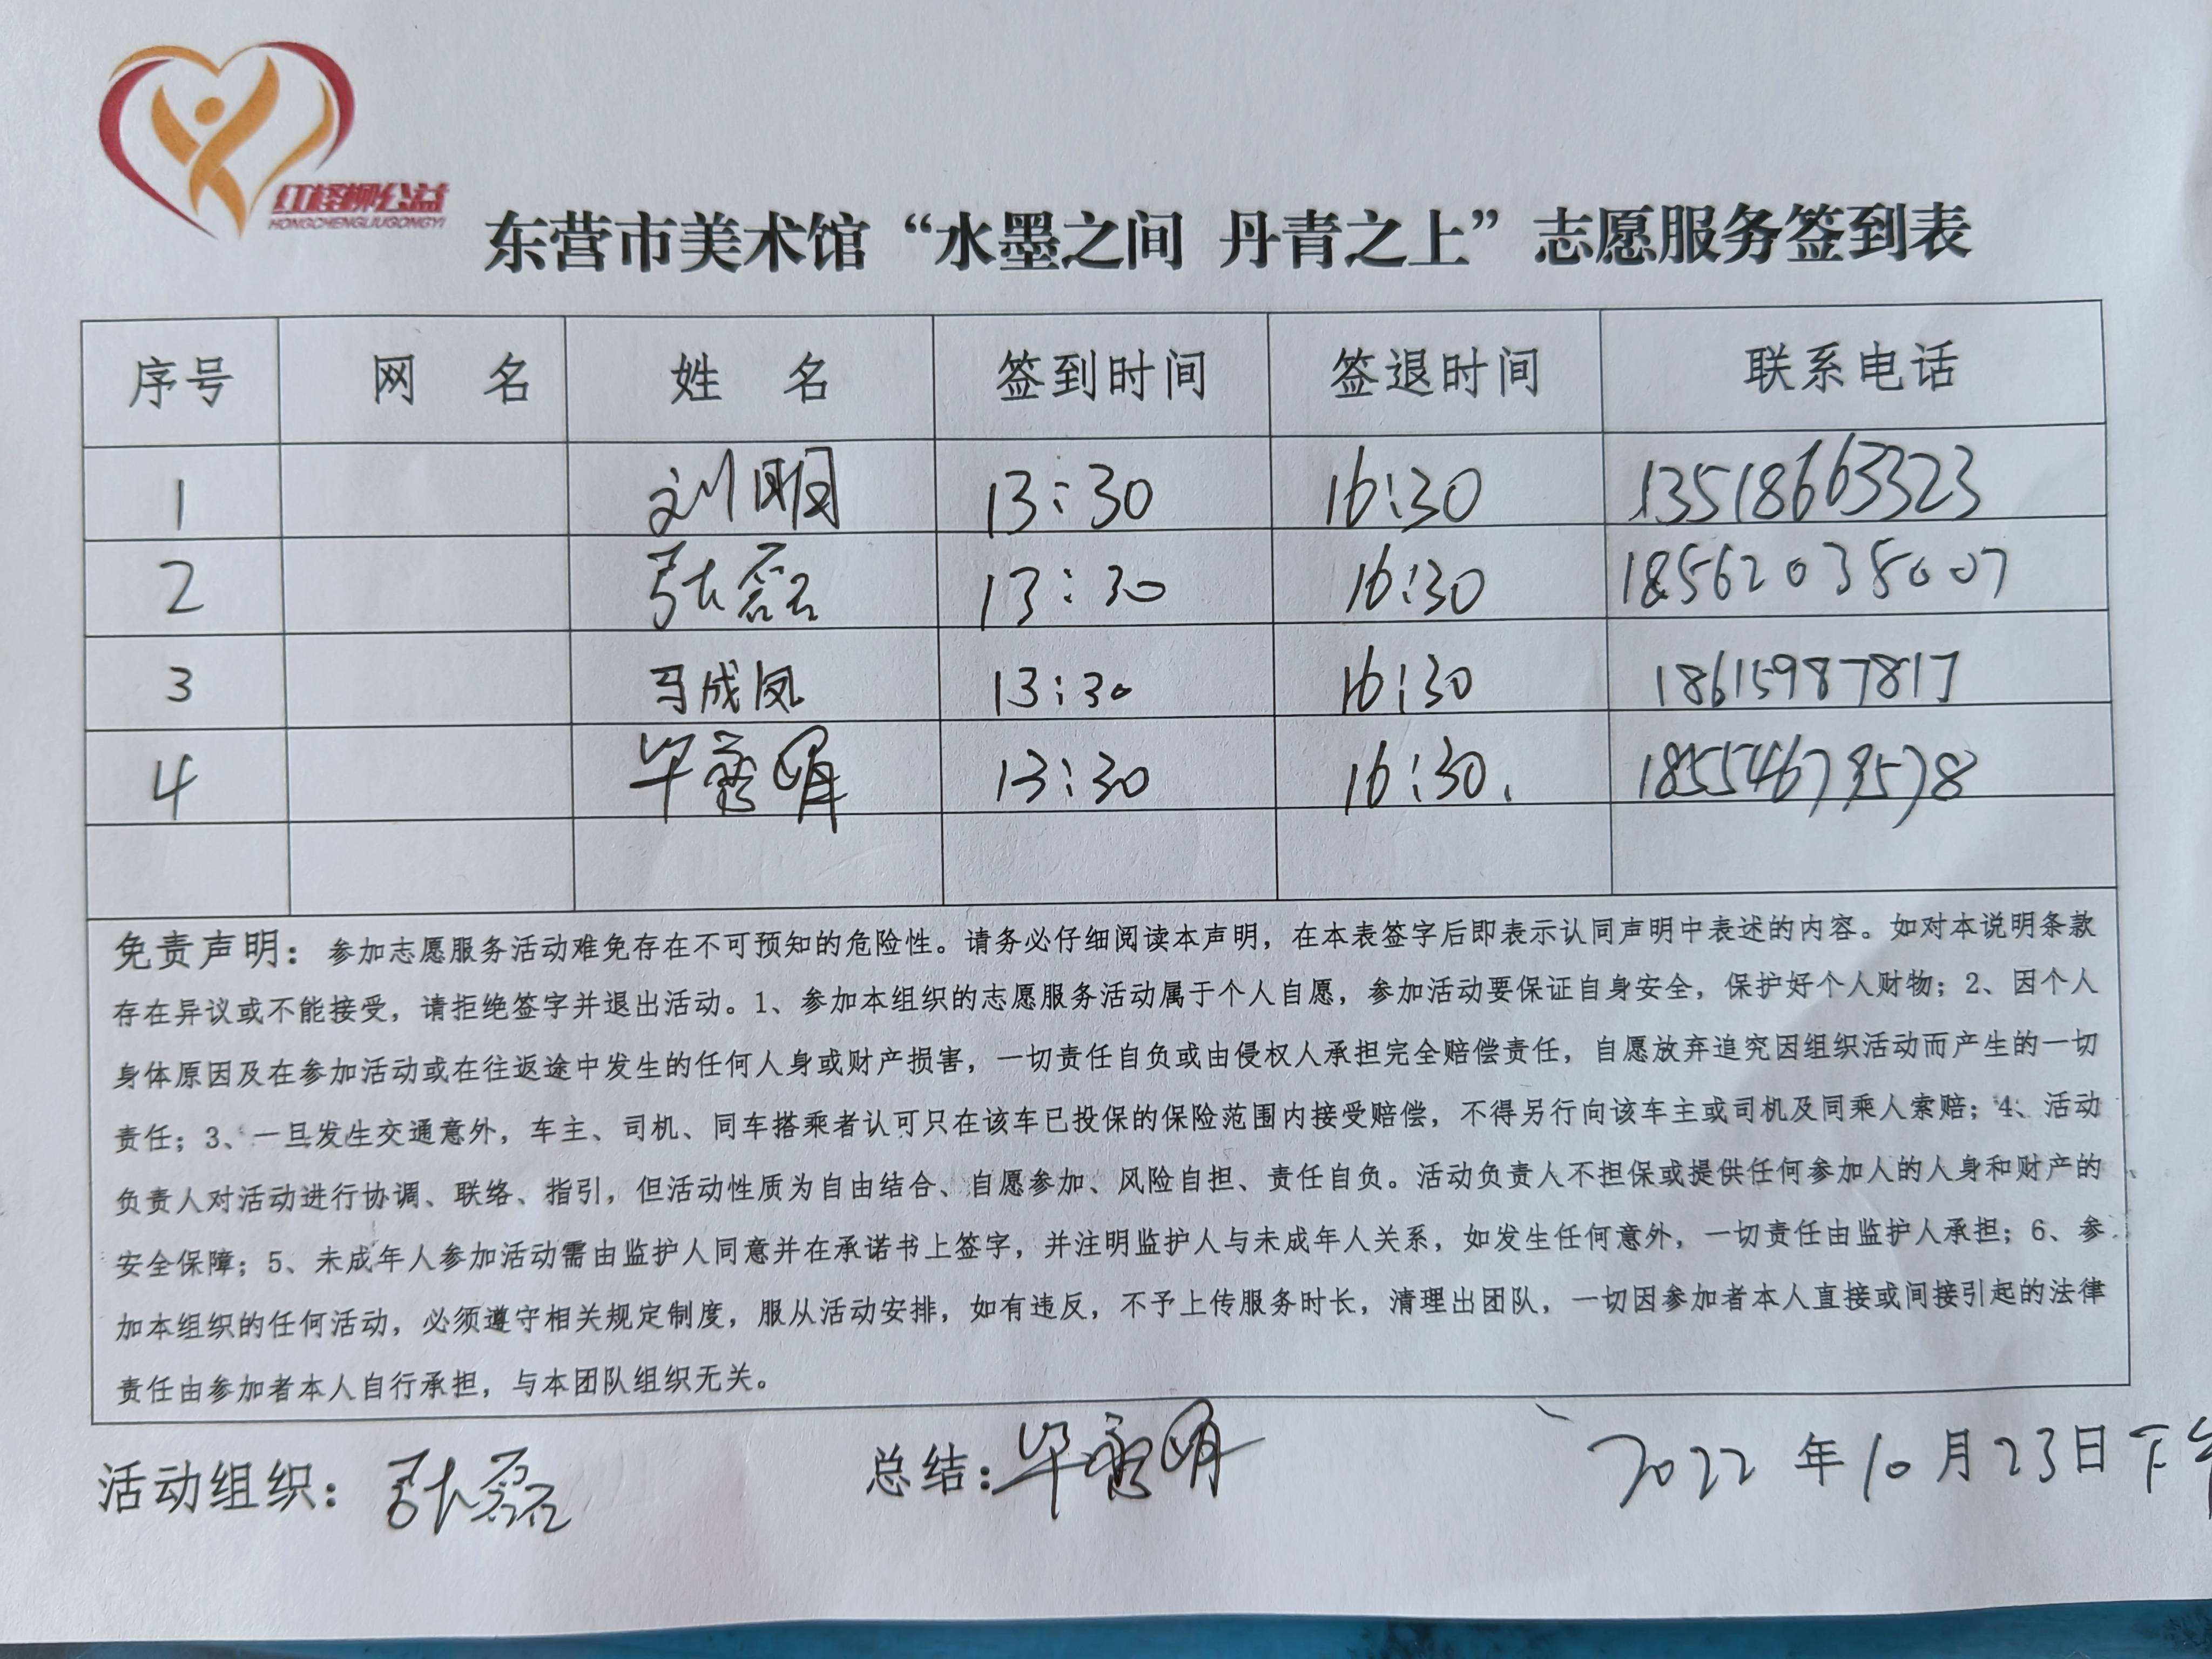 红柽柳公益
HONGCHENGLIUGONGYI
东营市美术馆“水墨之间 丹青之上”志愿服务签到表
序号 网 名 姓 名 签到时间 签退时间 联系电话
1 刘明 13:30 16:30 13518663323
2 张磊 13:30 16:30 18562038007
3 马成凤 13:30 16:30 18615987817
4 毕 明 13:30 16:30. 18554678578
免责声明：参加志愿服务活动难免存在不可预知的危险性。请务必仔细阅读本声明，在本表签字后即表示认同声明中表述的内容。如对本说明条款
存在异议或不能接受，请拒绝签字并退出活动。1、参加本组织的志愿服务活动属于个人自愿，参加活动要保证自身安全，保护好个人财物；2、因个人
身体原因及在参加活动或在往返途中发生的任何人身或财产损害，一切责任自负或由侵权人承担完全赔偿责任，自愿放弃追究因组织活动而产生的一切
责任；3、一旦发生交通意外，车主、司机、同车搭乘者认可只在该车已投保的保险范围内接受赔偿，不得另行向该车主或司机及同乘人索赔；4、活动
负责人对活动进行协调、联络、指引，但活动性质为自由结合、自愿参加、风险自担、责任自负。活动负责人不担保或提供任何参加人的人身和财产的
安全保障；5、未成年人参加活动需由监护人同意并在承诺书上签字，并注明监护人与未成年人关系，如发生任何意外，一切责任由监护人承担；6、参
加本组织的任何活动，必须遵守相关规定制度，服从活动安排，如有违反，不予上传服务时长，清理出团队，一切因参加者本人直接或间接引起的法律
责任由参加者本人自行承担，与本团队组织无关。
活动组织：张磊 总结：毕 明 2022年10月23日下午